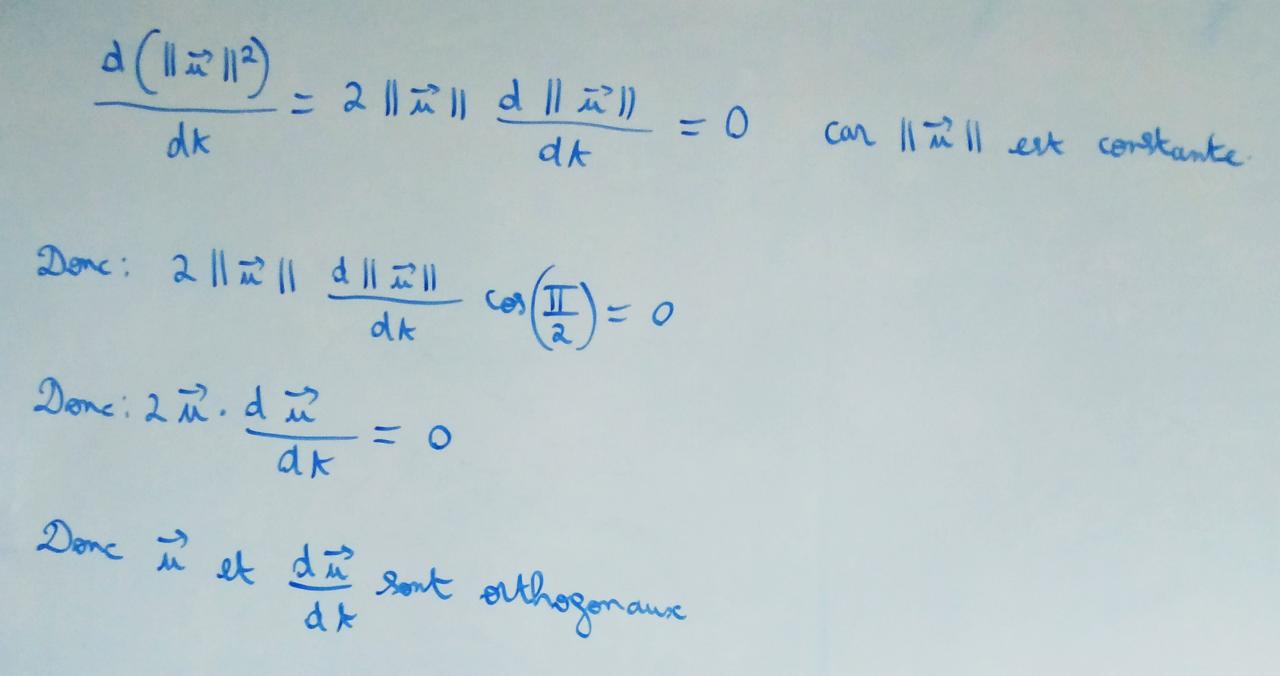 d(||u⃗||²)/dt = 2 ||u⃗|| d||u⃗||/dt = 0 car ||u⃗|| est constante.
Donc: 2 ||u⃗|| d||u⃗||/dt cos(π/2) = 0
Donc: 2 u⃗ . du⃗/dt = 0
Donc u⃗ et du⃗/dt sont orthogonaux